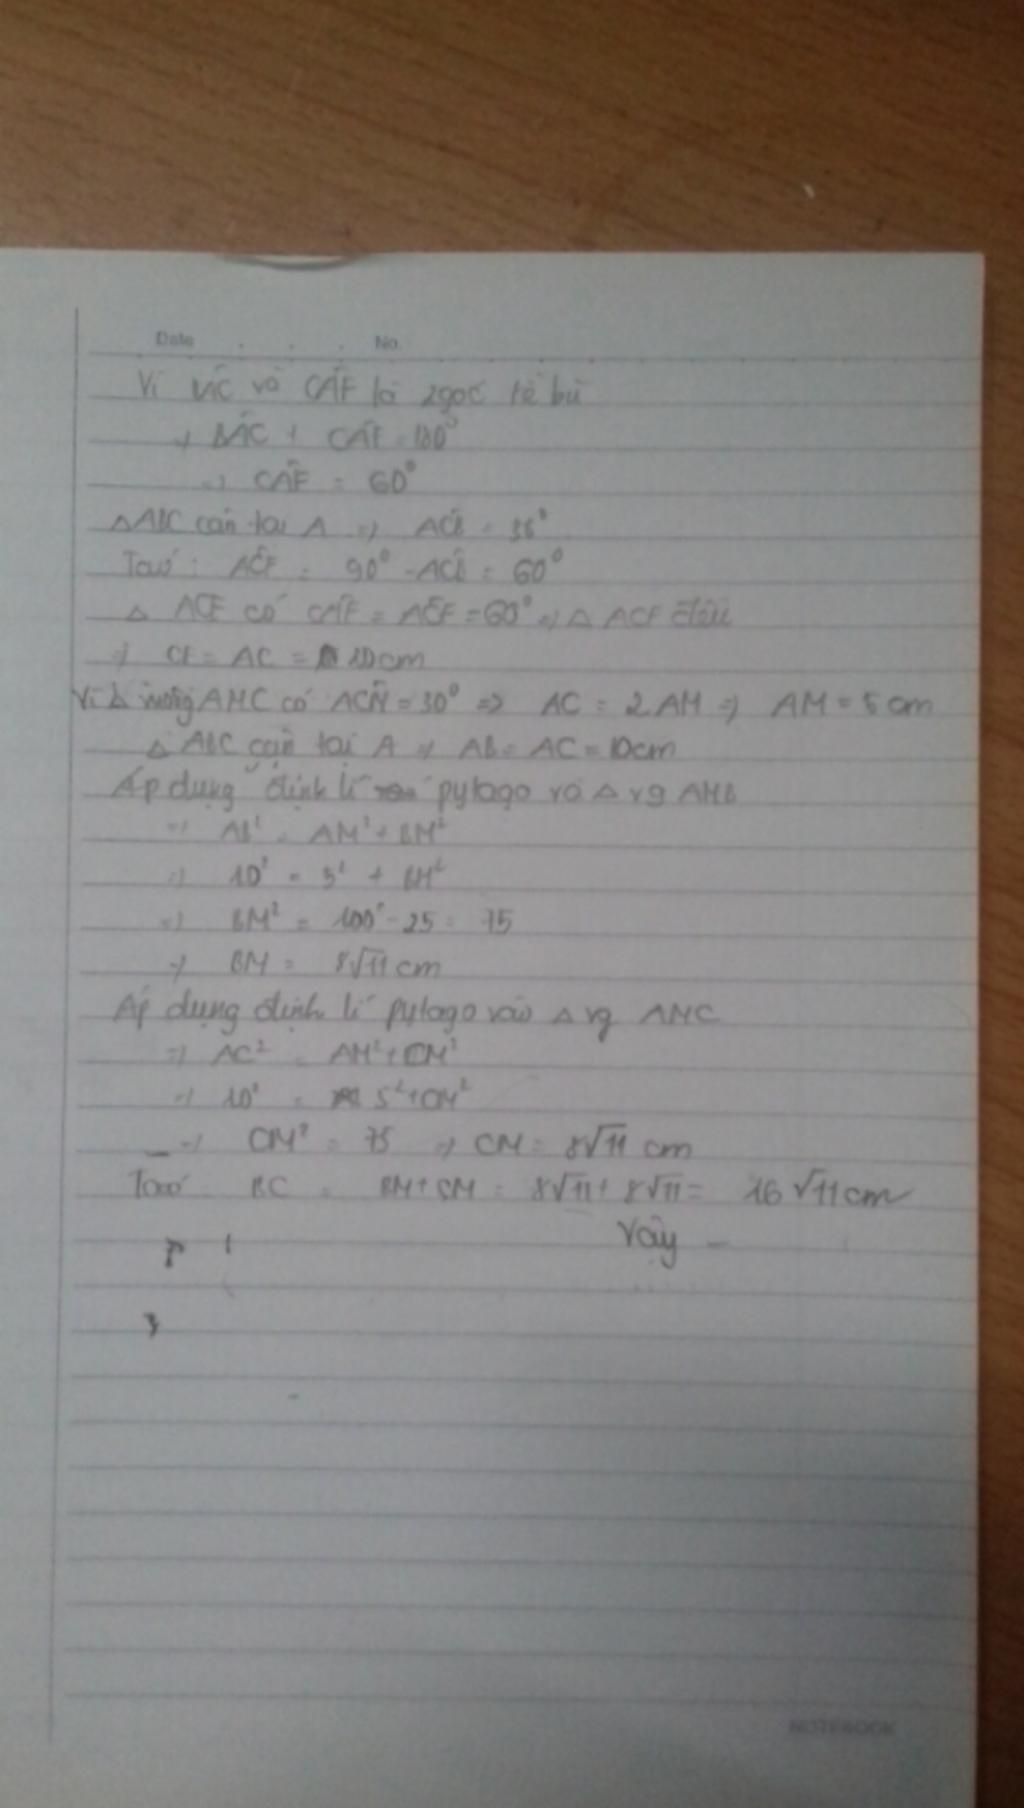 Date . . . No.
Vì BÂC và CÂF là 2 góc kề bù
=> BÂC + CÂF = 180°
=> CÂF = 60°
△ABC cân tại A => AĈB = 30°
Ta có: AĈF = 90° - AĈB = 60°
△ ACF có CÂF = AĈF = 60° => △ ACF đều
=> CF = AC = 10cm
Vì △ vuông AMC có AĈM = 30° => AC = 2AM => AM = 5cm
△ ABC cân tại A => AB = AC = 10cm
Áp dụng định lí pytago và △ vg AMB
=> AB² = AM² + BM²
=> 10² = 5² + BM²
=> BM² = 100 - 25 = 75
=> BM = 8√11 cm
Áp dụng định lí pytago vào △ vg AMC
=> AC² = AM² + CM²
=> 10² = 5² + CM²
=> CM² = 75 => CM = 8√11 cm
Ta có BC = BM + CM = 8√11 + 8√11 = 16√11 cm
Vậy -
NOTEBOOK